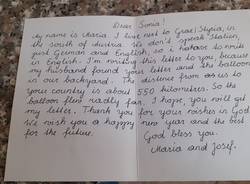 Dear Sonia!
My name is Maria. I live next to Graz/Styria, in
the south of Austria. We don't speak Italian,
just German and English, so I have to write
in English. I'm writing this letter to you because
my husband found your letter and the balloon
in our backyard. The distance from us to
your country is about 550 kilometres. So the
balloon flew really far. I hope, you will get
my letter. Thank you for your wishes in
We wish you a happy new year and the best
for the future.
God bless you.
Maria and Josef.